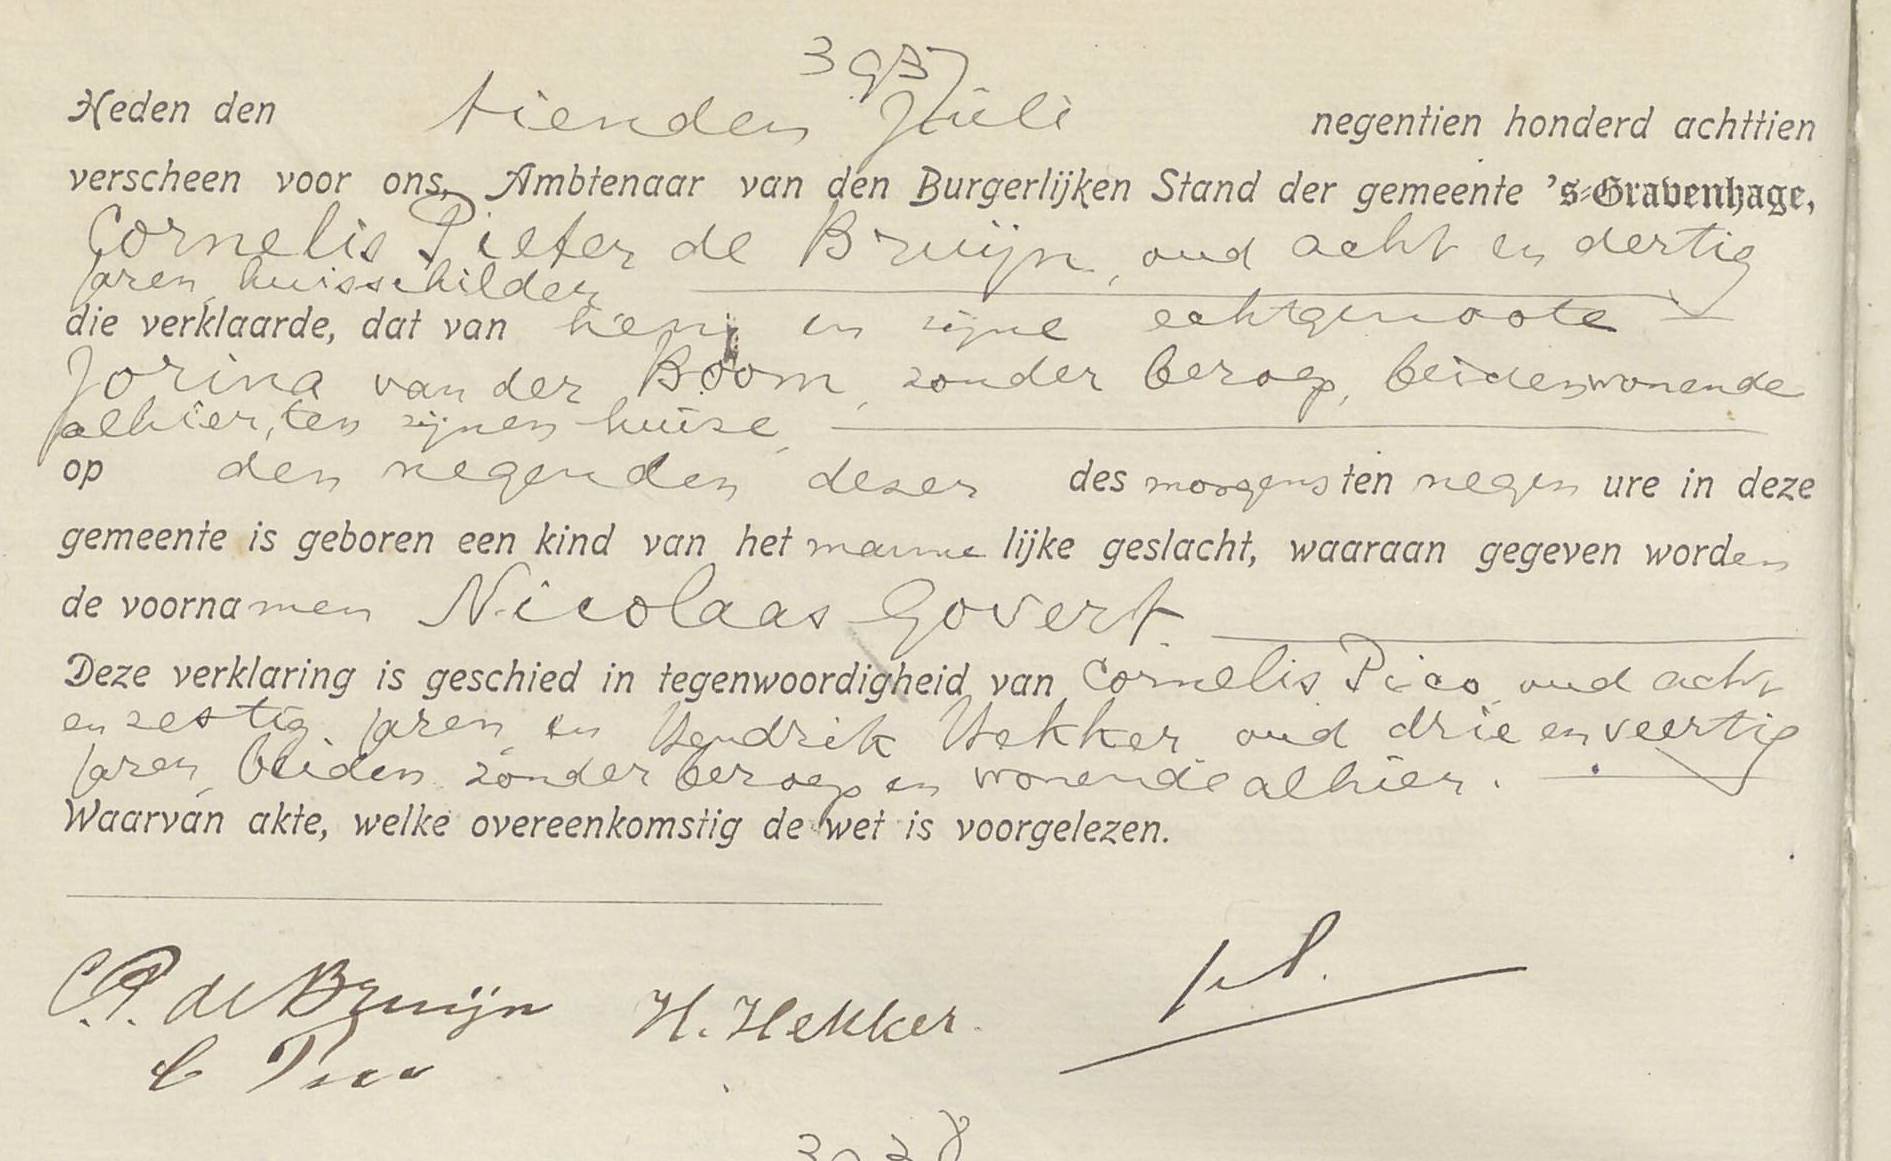 3937
Heden den tienden Juli negentien honderd achttien
verscheen voor ons, Ambtenaar van den Burgerlijken Stand der gemeente 's-Gravenhage,
Cornelis Pieter de Bruijn, oud acht en dertig
jaren, huisschilder,
die verklaarde, dat van hem en zijne echtgenoote
Jorina van der Boom, zonder beroep, beiden wonende
alhier, ten zijnen huize,
op den negenden dezer des morgens ten negen ure in deze
gemeente is geboren een kind van het manne lijke geslacht, waaraan gegeven worden
de voornamen Nicolaas Govert
Deze verklaring is geschied in tegenwoordigheid van Cornelis Pico, oud acht
en zestig jaren, en Hendrik Hekker, oud drie en veertig
jaren, beiden zonder beroep en wonende alhier.
Waarvan akte, welke overeenkomstig de wet is voorgelezen.
C.P. de Bruijn H. Hekker.
C Pico
3938